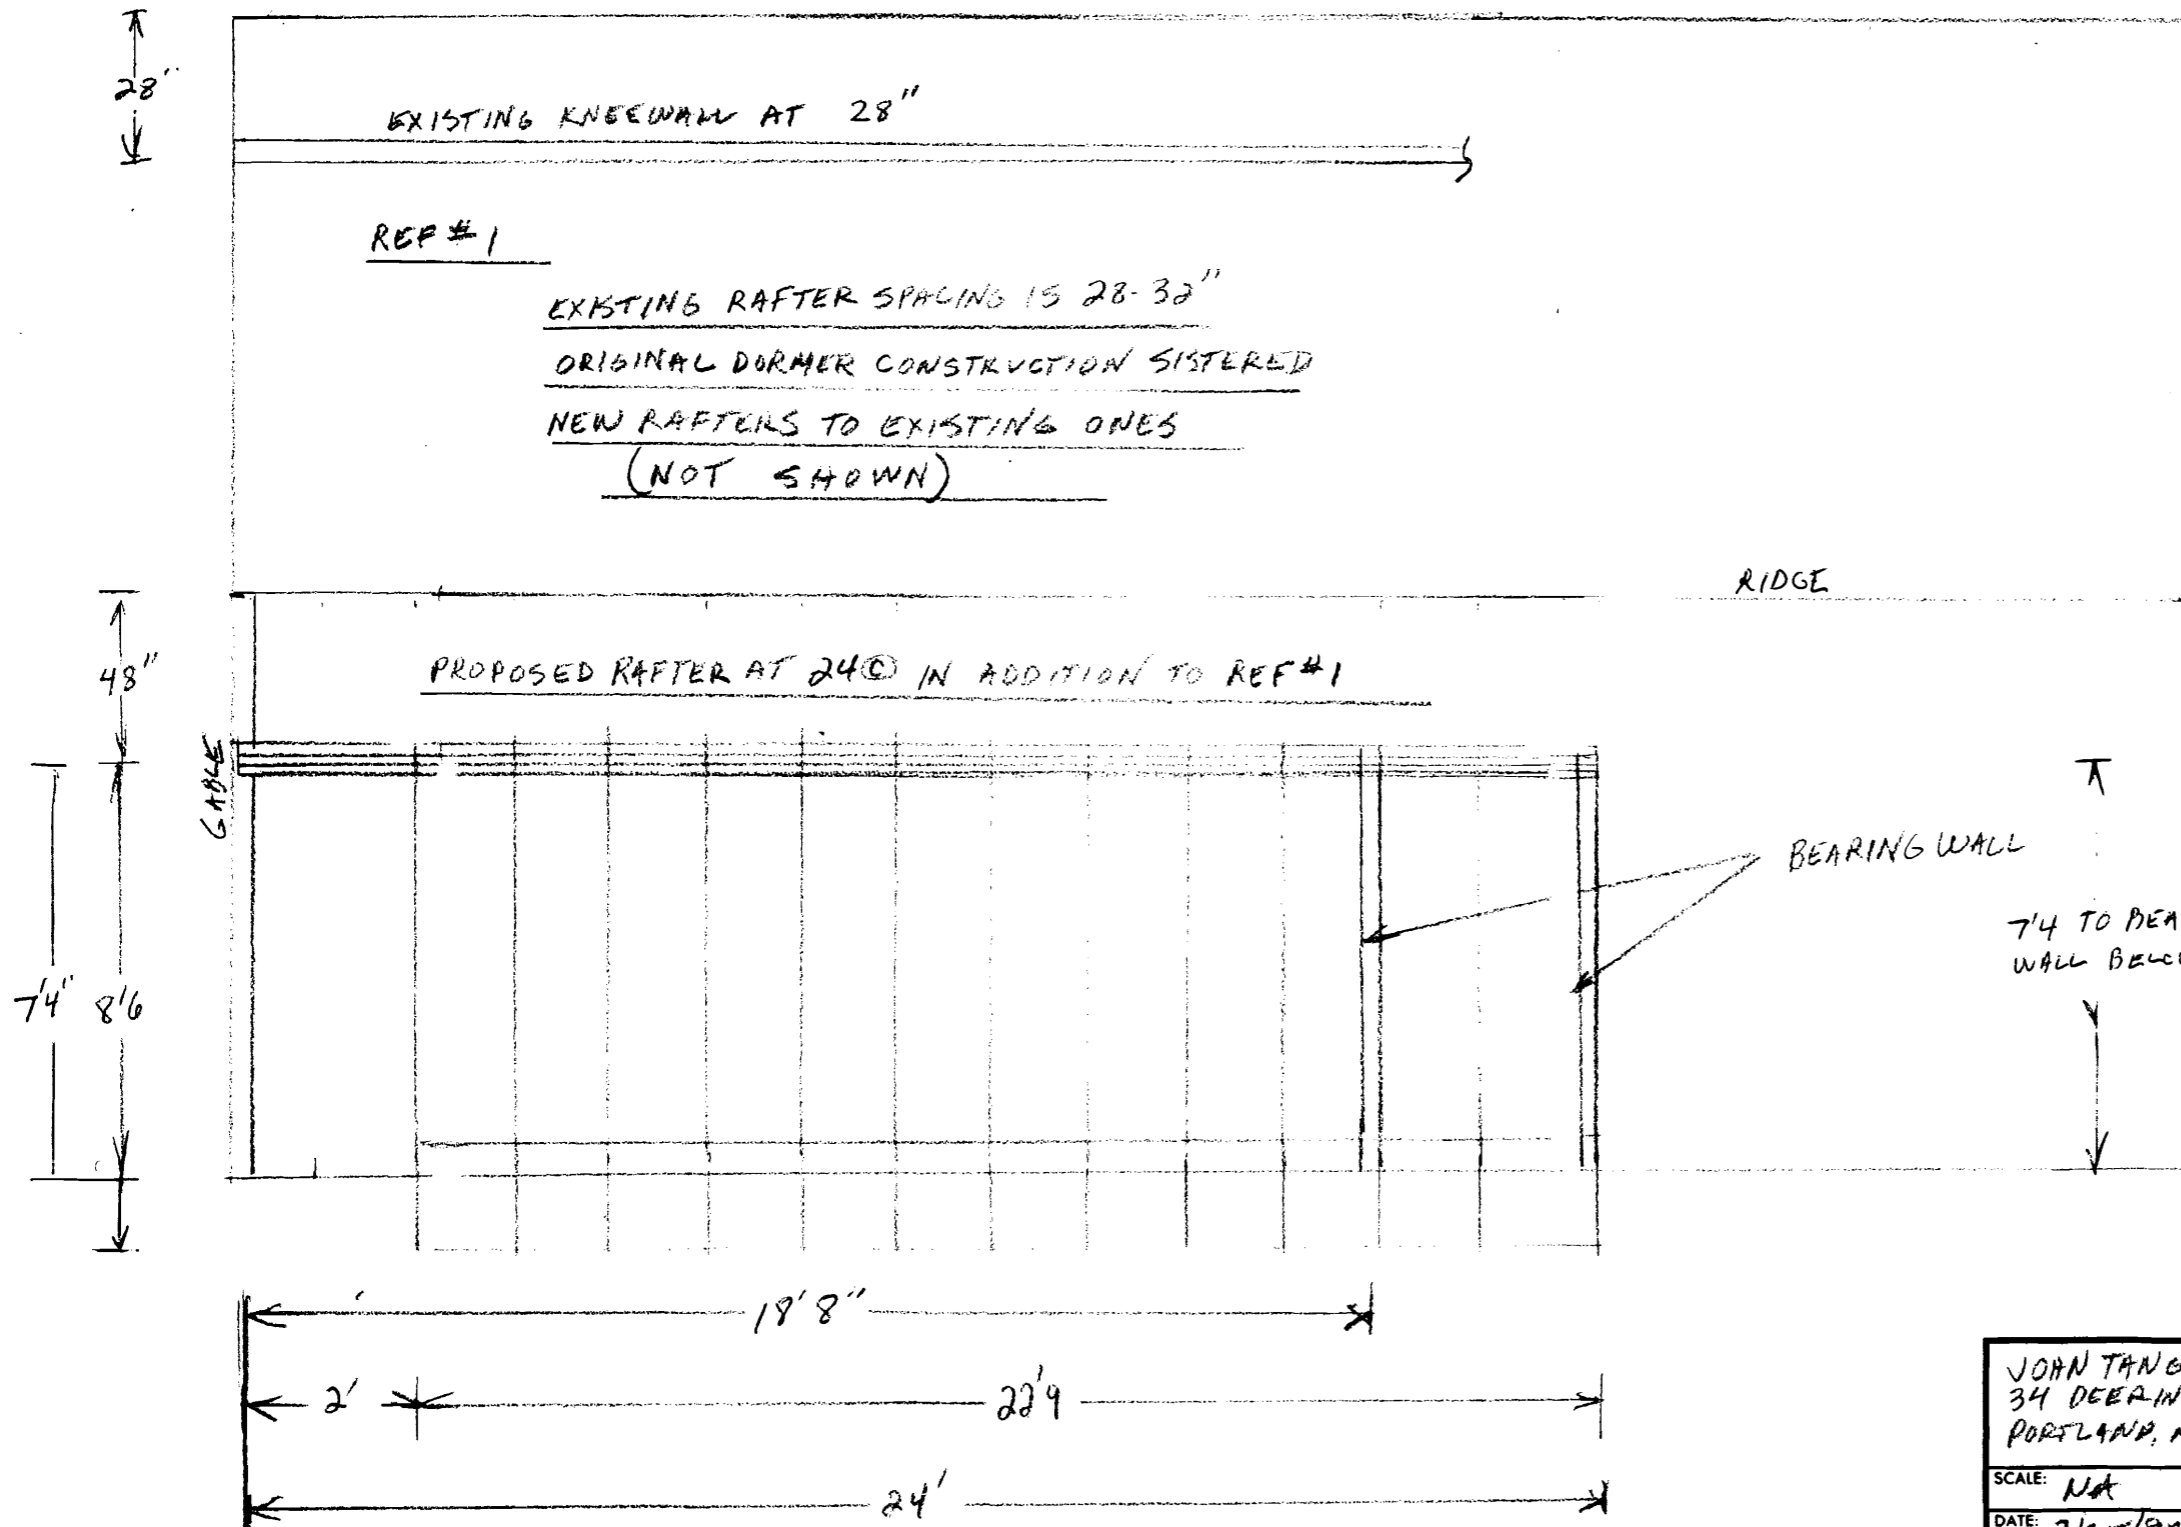 28"
EXISTING KNEEWALL AT 28"
REF #1
EXISTING RAFTER SPACING IS 28-32"
ORIGINAL DORMER CONSTRUCTION SISTERED
NEW RAFTERS TO EXISTING ONES
(NOT SHOWN)
RIDGE
48"
PROPOSED RAFTER AT 24© IN ADDITION TO REF #1
GABLE
BEARING WALL
7'4 TO BEA
WALL BELO
7'4" 8'6
18'8"
2' 22'9
24'
JOHN TANG
34 DEERIN
PORTLAND, M
SCALE: NA
DATE: